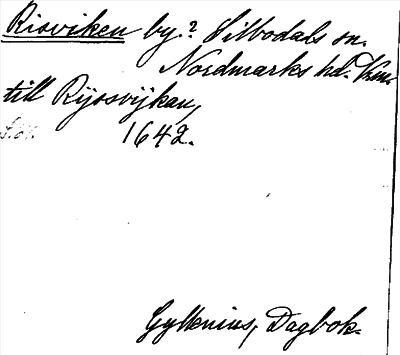 Risviken by? Silbodals sn.
Nordmarks hd. Vrm.
till Rijssvijkan,
1642.
Gyllenius, Dagbok.